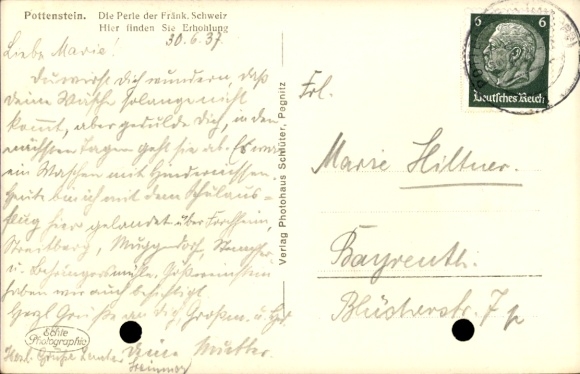 Pottenstein. Die Perle der Fränk. Schweiz
Hier finden Sie Erholung
30.6.37.
Liebe Marie!
Du wirst Dich wundern, daß
Deine Wäsche solange nicht
kommt, aber gedulde Dich, in den
nächsten Tagen geht sie ab. Es war
ein Waschen mit Hindernissen.
Heute bin ich mit dem Schulaus-
flug hier gelandet über Forchheim,
Streitberg, Muggendorf,
u. Behringersmühle. Gößweinstein
haben wir auch besichtigt.
Herzl. Grüße an die Großm. u.
Deine Mutter.
Herzl. Grüße
Echte
Photographie
Verlag Photohaus Schlüter, Pegnitz
6 6
Deutsches Reich
Frl.
Marie Hiltner.
Bayreuth.
Blücherstr. 7